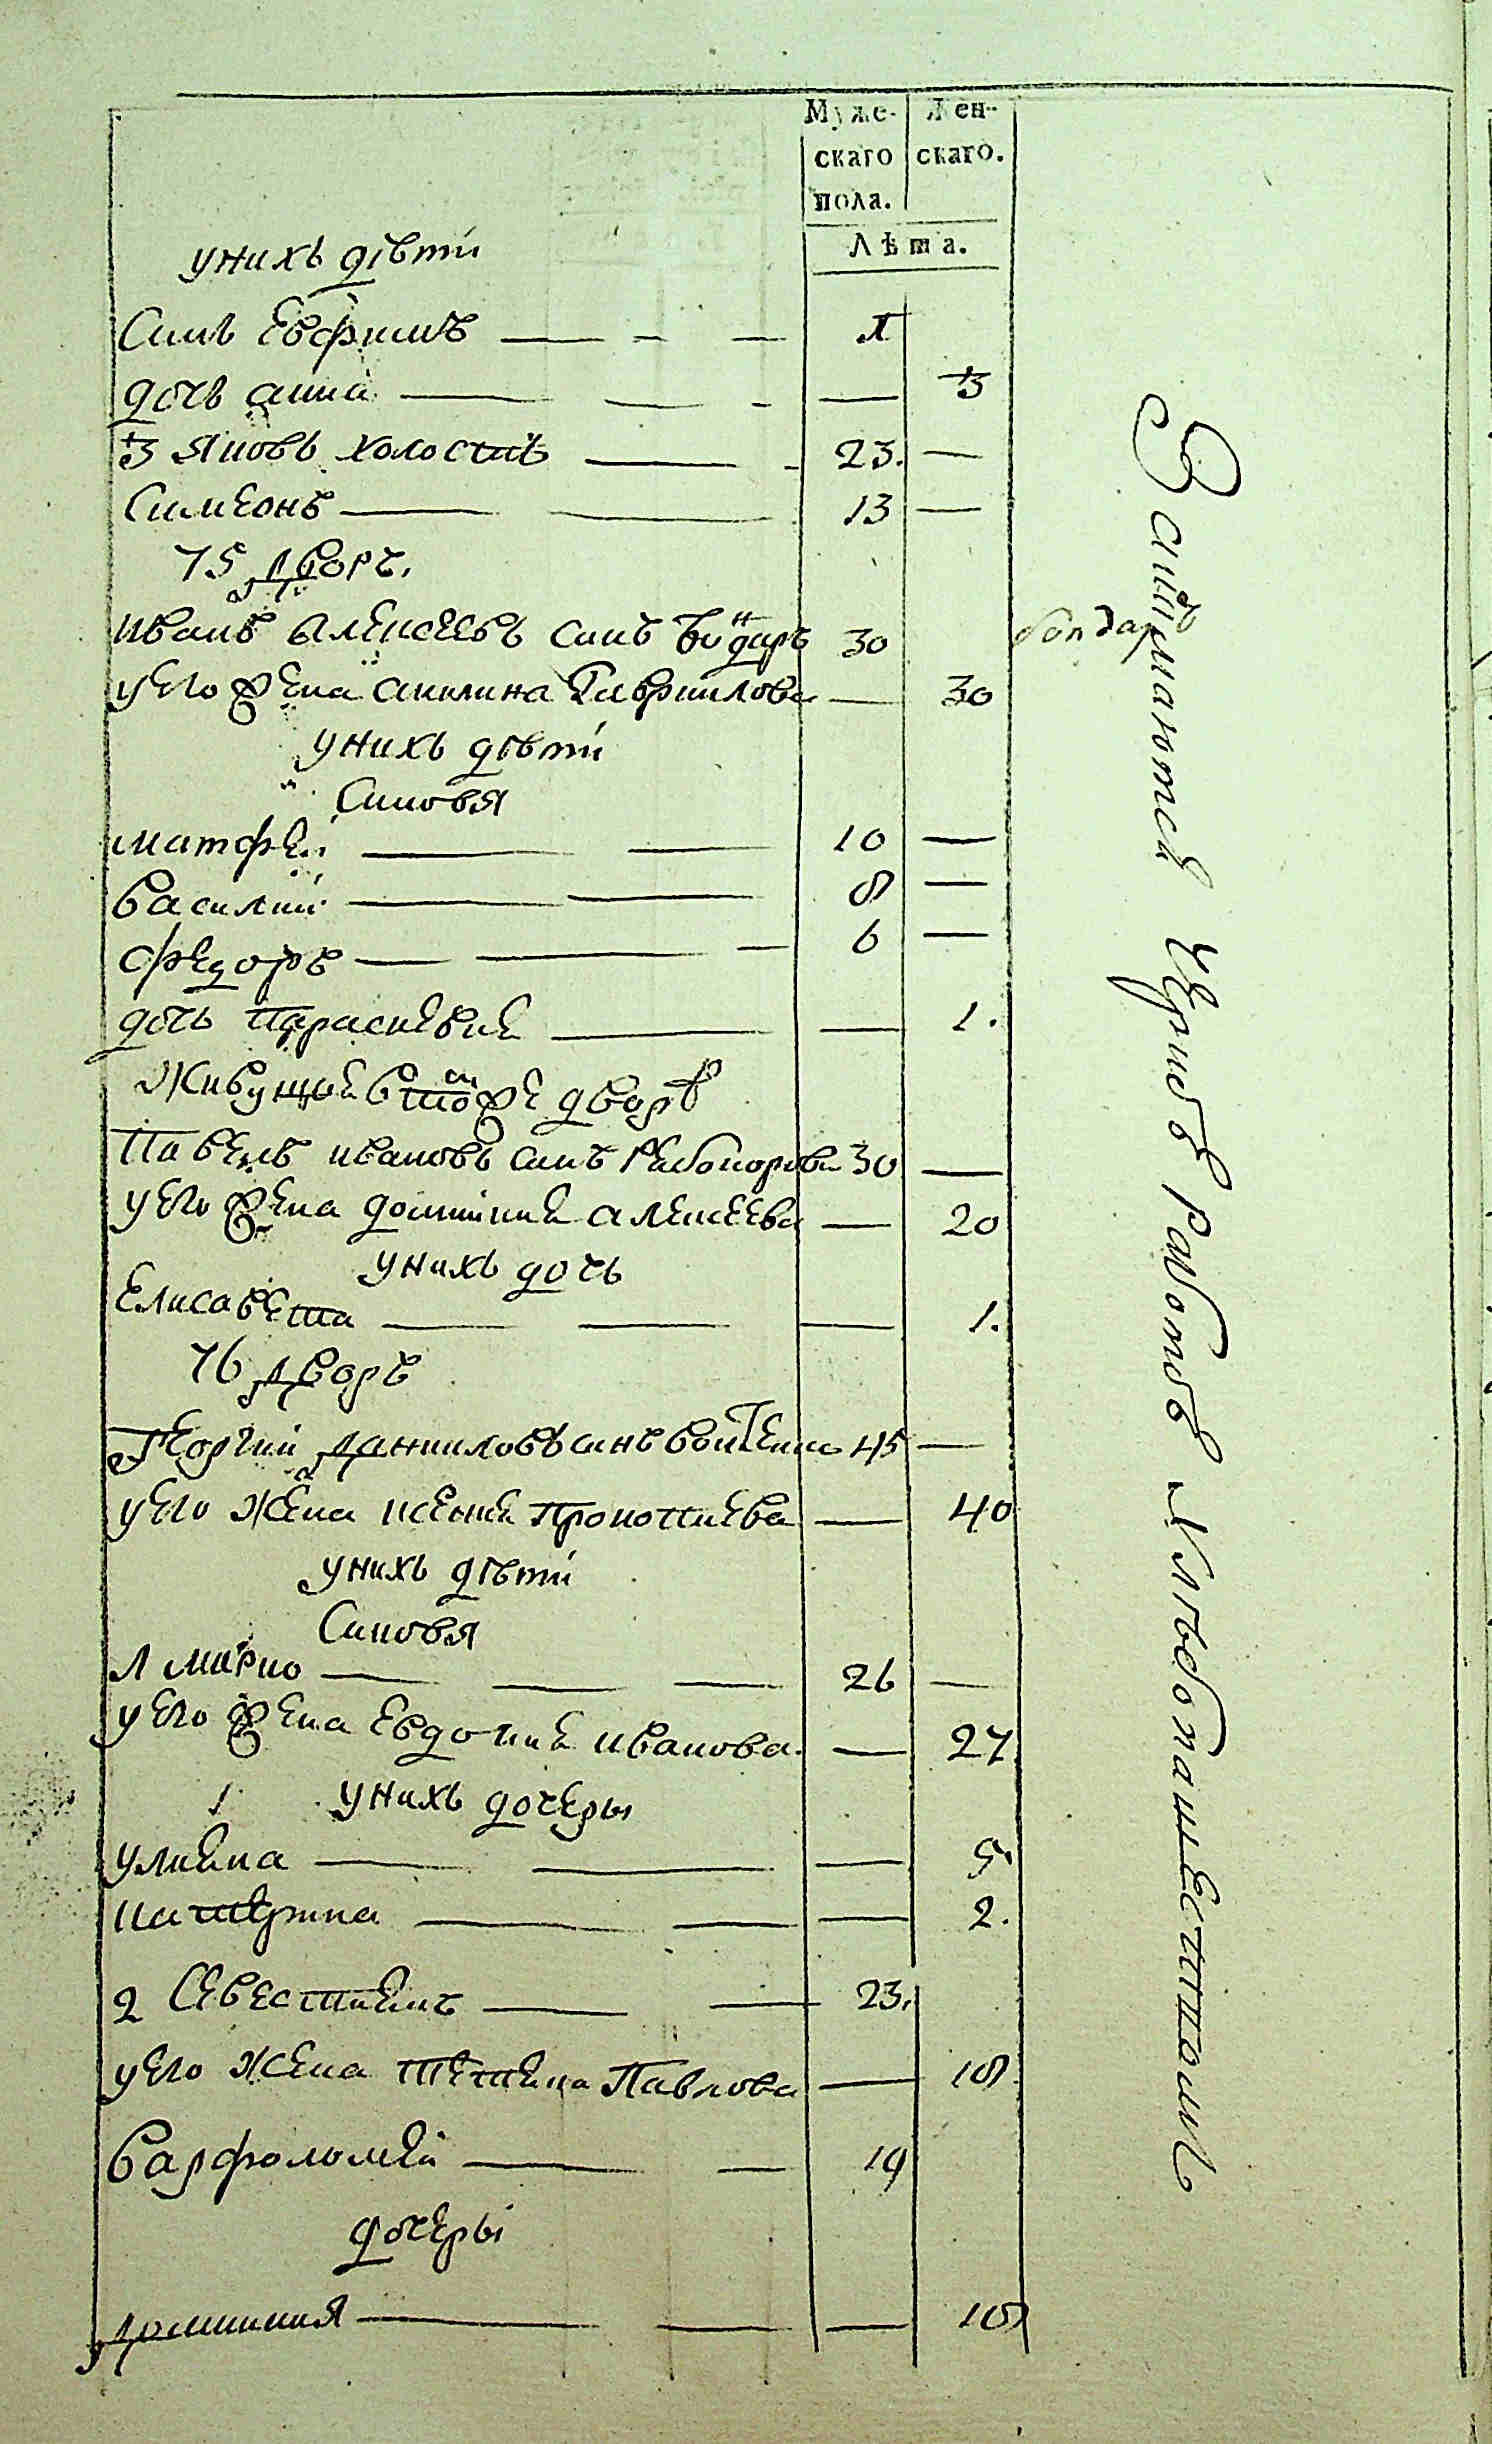 Муже-
скаго
пола.
Жен-
скаго.
Лѣта.
у нихъ дѣти
Синъ Евфимъ — — — 1
дочь анна — — — — 3
3 Яковъ холостъ — — 23. —
Симеонъ — — 13 —
75 дворъ.
иванъ Алексеевъ синъ бондаръ 30
бондарь
у него жена акилина Гавриилова — 30
у нихъ дѣти
Синовя
матфей — — 10 —
василий — — 8 —
Федоръ — — — 6 —
дочь параскевия — — 1.
Живущие в томже дворѣ
Павелъ ивановъ синъ 30 —
у его жена домникия алексеева — 20
у нихъ дочь
Елисавета — — — 1.
76 дворъ
Георгий даниловъ синъ 45 —
у его жена ксения прокопиева — 40
у нихъ дѣти
Синовя
1 марко — — — 26 —
у его жена евдокия иванова — 27
у нихъ дочеры
улияна — — — 5
катерина — — — 2.
2 Севестиянъ — — 23.
у его жена тетяна Павлова — 18
варфоломей — — 19
дочеры
домникия — — — 18
Занимаются черною работою и хлебопашеством